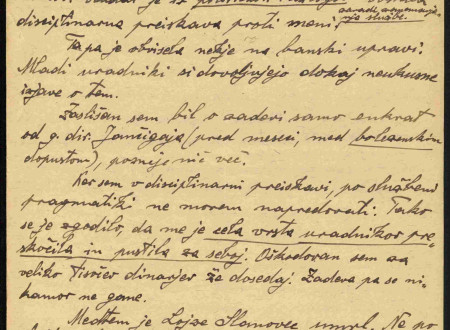 disciplinarna preiskava proti meni
nja službe.
Ta pa je obvisela nekje na banski upravi.
Mladi uradniki si dovoljujejo dokaj neukusne
izjave o tem.
Zaslišan sem bil o zadevi samo enkrat
od g. dir. Jančigaja (pred meseci, med bolezenskim
dopustom), pozneje nič več.
Ker sem v disciplinarni preiskavi, po službeni
pragmatiki ne morem napredovati. Tako
se je zgodilo, da me je cela vrsta uradnikov pre-
skočila in pustila za seboj. Oškodovan sem za
veliko tisočev dinarjev že dosedaj. Zadeva pa se ni-
kamor ne gane.
Medtem je Lojze Slanovec umrl. Ne po